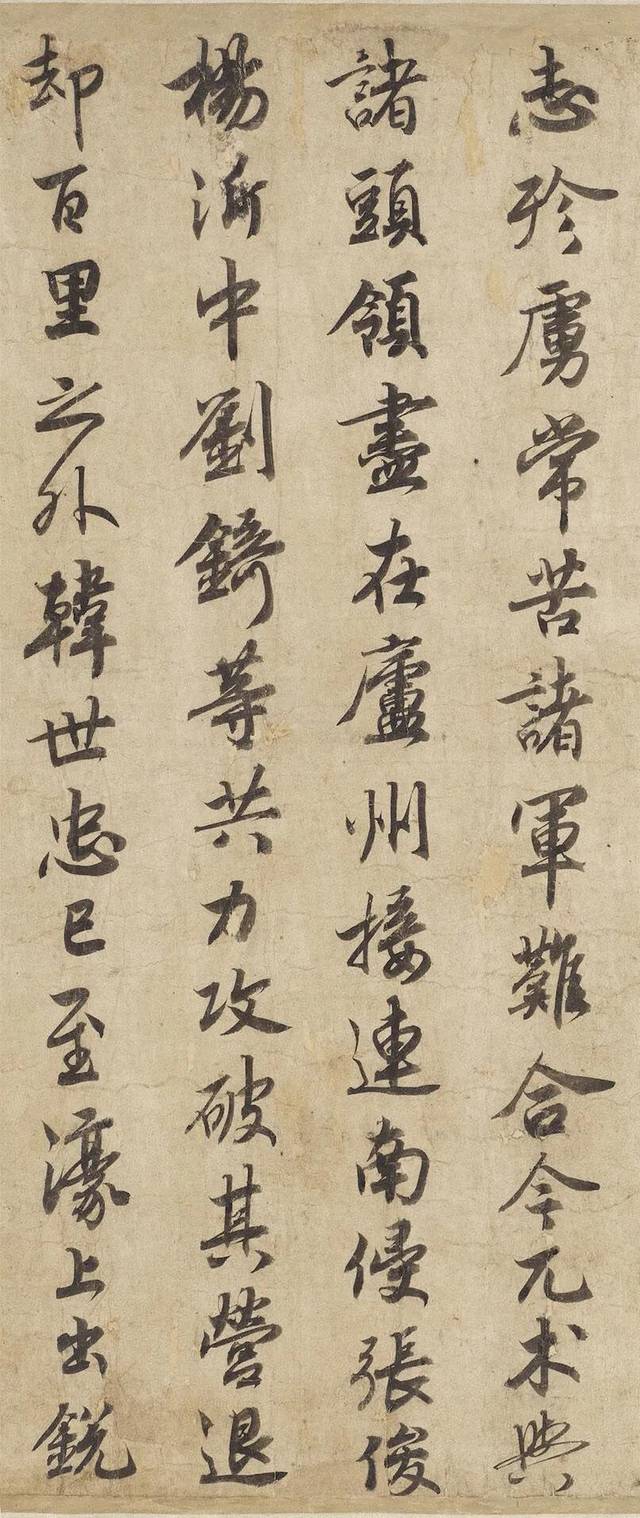 志殄虜常苦諸軍難合今兀术與
諸頭領盡在廬州接連南侵張俊
楊沂中劉錡等共力攻破其營退
却百里之外韓世忠已至濠上出銳